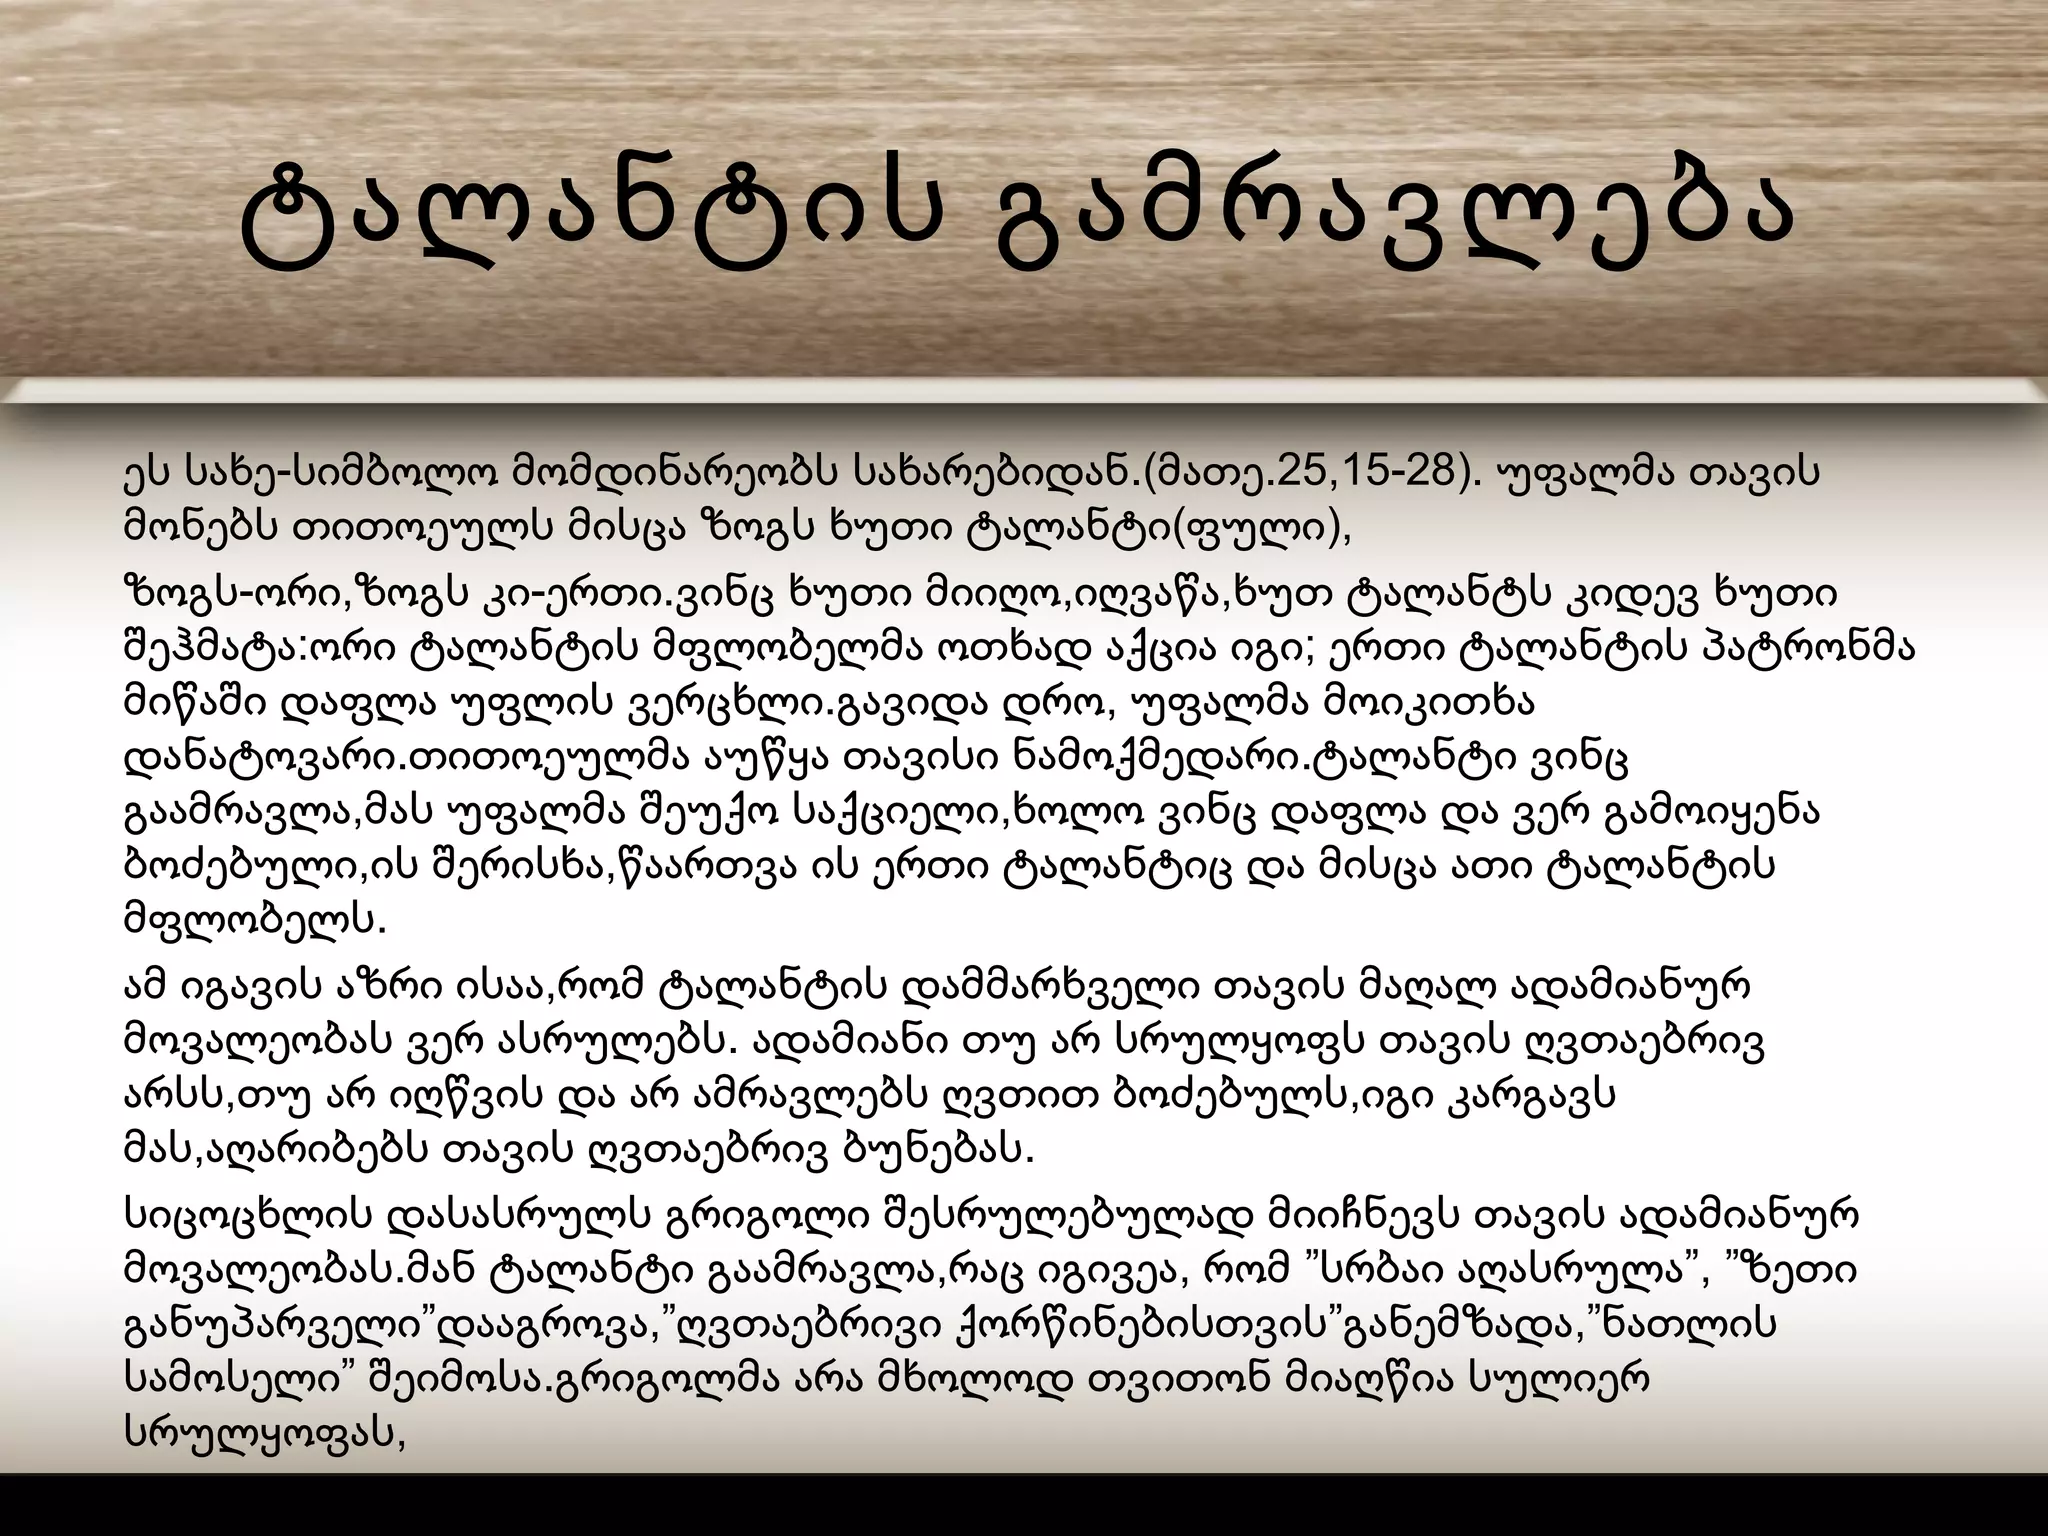 ტალანტის გამრავლება
ეს სახე-სიმბოლო მომდინარეობს სახარებიდან.(მათე.25,15-28). უფალმა თავის
მონებს თითოეულს მისცა ზოგს ხუთი ტალანტი(ფული),
ზოგს-ორი,ზოგს კი-ერთი.ვინც ხუთი მიიღო,იღვაწა,ხუთ ტალანტს კიდევ ხუთი
შეჰმატა:ორი ტალანტის მფლობელმა ოთხად აქცია იგი; ერთი ტალანტის პატრონმა
მიწაში დაფლა უფლის ვერცხლი.გავიდა დრო, უფალმა მოიკითხა
დანატოვარი.თითოეულმა აუწყა თავისი ნამოქმედარი.ტალანტი ვინც
გაამრავლა,მას უფალმა შეუქო საქციელი,ხოლო ვინც დაფლა და ვერ გამოიყენა
ბოძებული,ის შერისხა,წაართვა ის ერთი ტალანტიც და მისცა ათი ტალანტის
მფლობელს.
ამ იგავის აზრი ისაა,რომ ტალანტის დამმარხველი თავის მაღალ ადამიანურ
მოვალეობას ვერ ასრულებს. ადამიანი თუ არ სრულყოფს თავის ღვთაებრივ
არსს,თუ არ იღწვის და არ ამრავლებს ღვთით ბოძებულს,იგი კარგავს
მას,აღარიბებს თავის ღვთაებრივ ბუნებას.
სიცოცხლის დასასრულს გრიგოლი შესრულებულად მიიჩნევს თავის ადამიანურ
მოვალეობას.მან ტალანტი გაამრავლა,რაც იგივეა, რომ ”სრბაი აღასრულა”, ”ზეთი
განუპარველი”დააგროვა,”ღვთაებრივი ქორწინებისთვის”განემზადა,”ნათლის
სამოსელი” შეიმოსა.გრიგოლმა არა მხოლოდ თვითონ მიაღწია სულიერ
სრულყოფას,